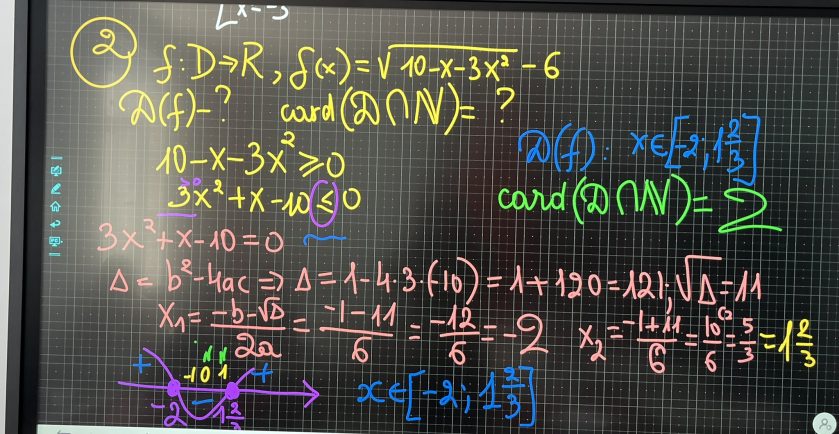 [x=-5
2 f:D→R, f(x)=√(10-x-3x²) - 6
D(f)-? card(D∩N)= ?
10-x-3x²≥0
3x²+x-10≤0
D(f): x∈[-2; 1 2/3]
card(D∩N)=2
3x²+x-10=0
Δ=b²-4ac ⇒ Δ=1-4·3·(-10)=1+120=121; √Δ=11
x₁=(-b-√Δ)/2a=(-1-11)/6=-12/6=-2 x₂=(-1+11)/6=10/6=5/3=1 2/3
N N
+ -1 0 1 +
-2 - 1 2/3
x∈[-2; 1 2/3]